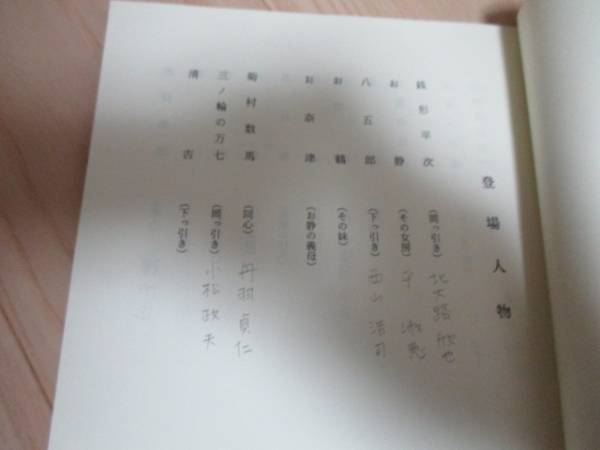 登場人物
銭形平次 (岡っ引き) 北大路欣也
お静 (その女房) 平淑恵
八五郎 (下っ引き) 西山浩司
お鶴 (その妹)
お奈津 (お静の義母)
菊村数馬 (同心) 丹羽貞仁
三ノ輪の万七 (岡っ引き) 小松政夫
清吉 (下っ引き)